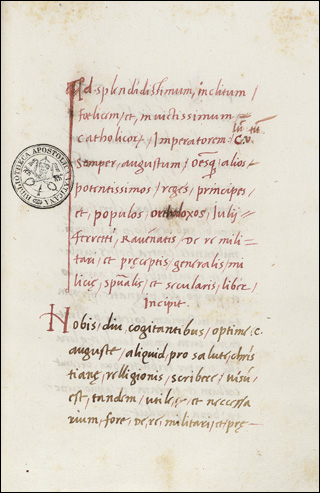 Ad splendidissimum, inclitum/
fœlicem/et, invictissimum
catholicor/ Imperatorem C.V.
Semper, augustum/ oesq̃/alios/
potentissimos/ reges/ principes/
et, populos orthodoxos/ Iulij/
Ferretti/ Ravẽnatis/ De re mili=
tari/ et pręceptis/ generalis/ mi
licię/ spũalis/ et secularis/ liber/
Incipit.
Nobis/ diu cogitantibus/ optime/ c.
auguste/ aliquid/ pro salute/ chris
tianę/ relligionis/ scribere/ visũ/
est/ tandem/ utile/ et necessa
rium/ fore/ de/ re/ militari/ et pre=
BIBLIOTHECA APOSTOLICA VATICANA